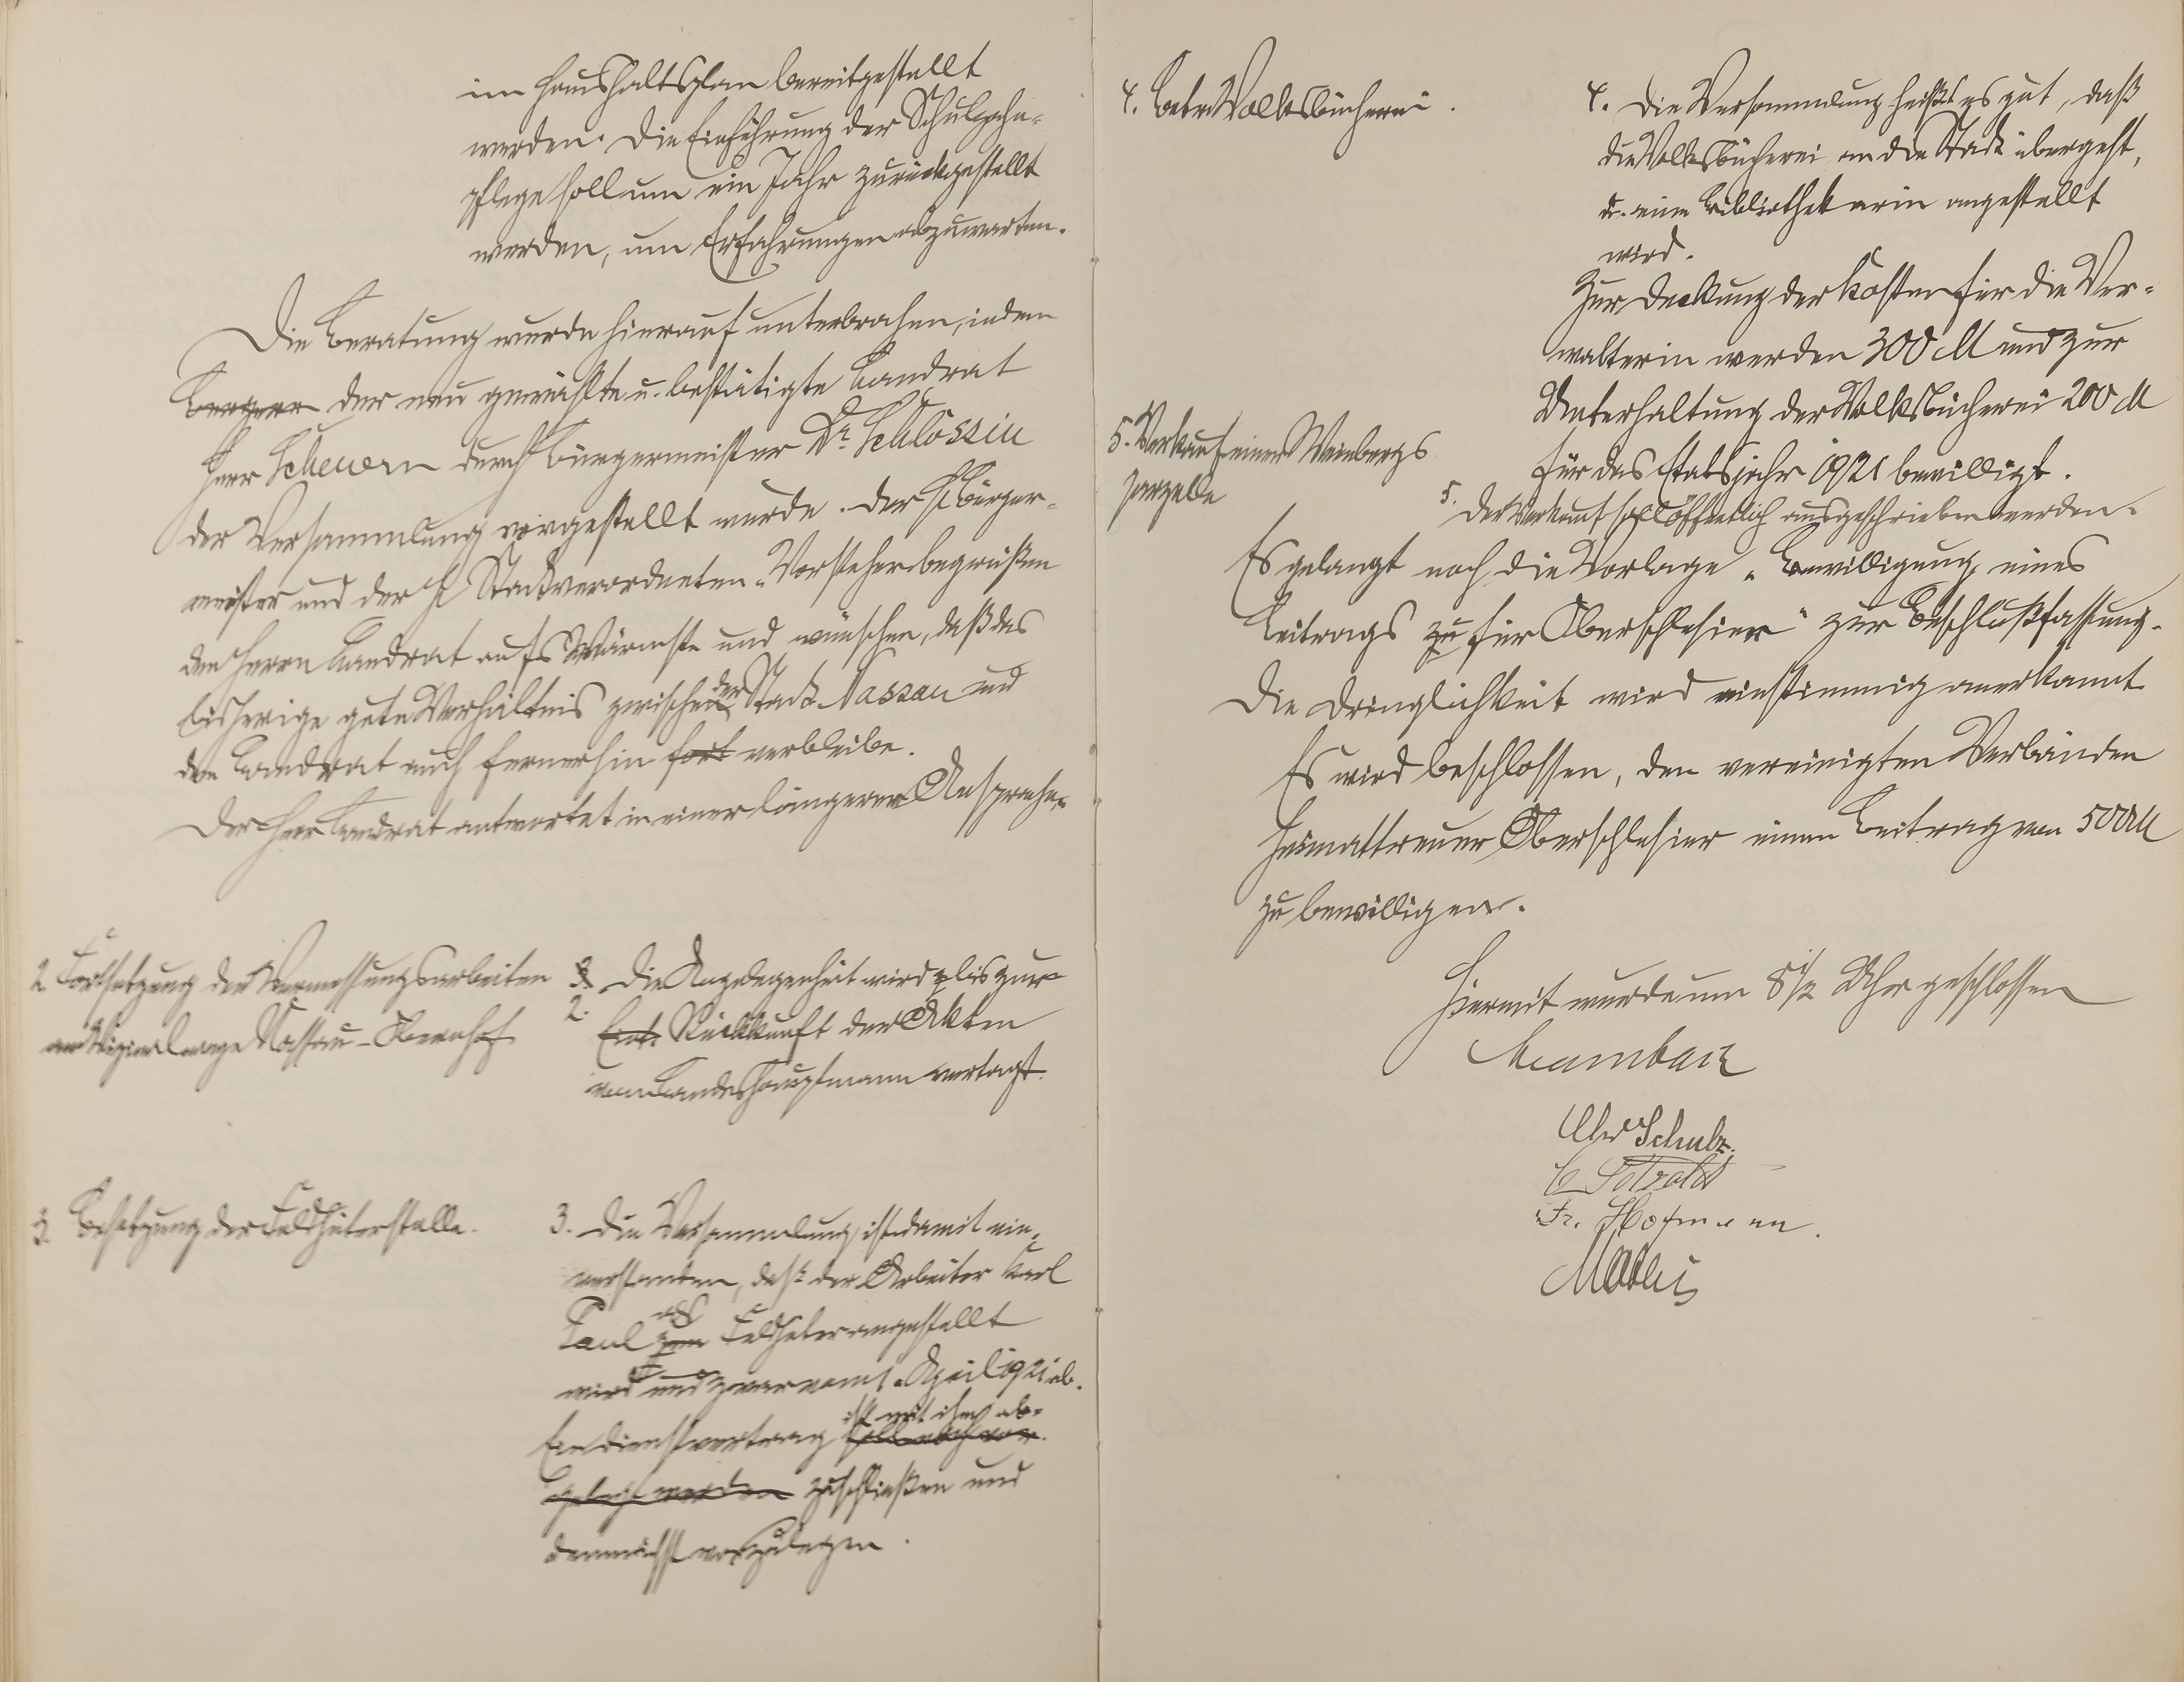 im Haushaltsplan bereitgestellt
werden. Die Einführung der Schulzahn-
pflege soll um ein Jahr zurückgestellt
werden, um Erfahrungen abzuwarten.
Die Beratung wurde hierauf unterbrochen, indem
der neu gewählte u. bestätigte Landrat
Herr Scheuern durch Bürgermeister Dr. Schlössin
der Versammlung vorgestellt wurde. Der H Bürger-
meister und der H Stadtverordneten-Vorsteher begrüßen
den Herrn Landrat aufs Wärmste und wünschen, daß das
bisherige gute Verhältnis zwischen der Stadt Nassau und
dem Landrat auch fernerhin fort verbleibe.
Der Herr Landrat antwortet in einer längeren Ansprache.
2 Fortsetzung der Vermessungsarbeiten
am Vizinalwege Nassau-Obernhof
2. Die Angelegenheit wird bis zur
Rückkunft der Akten
vom Landeshauptmann vertagt.
3. Besetzung der Feldhüterstelle.
3. Die Versammlung ist damit ein-
verstanden, daß der Arbeiter Karl
Paul zum als Feldhüter angestellt
wird und zwar vom 1. April 1921 ab.
Ein Dienstvertrag soll noch vor- ist mit ihm ab-
gelegt werden zuschließen und
demnächst vorzulegen.
4. Betr. Volksbücherei.
4. Die Versammlung heißt es gut, daß
die Volksbücherei an die Stadt übergeht,
u. eine Bibliothekarin angestellt
wird.
Zur Deckung der Kosten für die Ver-
walterin werden 300 M und zur
Unterhaltung der Volksbücherei 200 M
für das Etatsjahr 1921 bewilligt.
5. Verkauf einer Weinbergs
parzelle
5. Der Verkauf soll öffentlich ausgeschrieben werden.
Es gelangt noch die Vorlage „Bewilligung eines
Beitrags zu für Oberschlesier" zur Beschlußfassung.
Die Dringlichkeit wird einstimmig anerkannt.
Es wird beschlossen, den vereinigten Verbänden
heimattreuer Oberschlesier einen Beitrag von 500 M
zu bewilligen.
Hiermit wurde um 8 1/2 Uhr geschlossen
Schulz.
Fr. Hofmann.